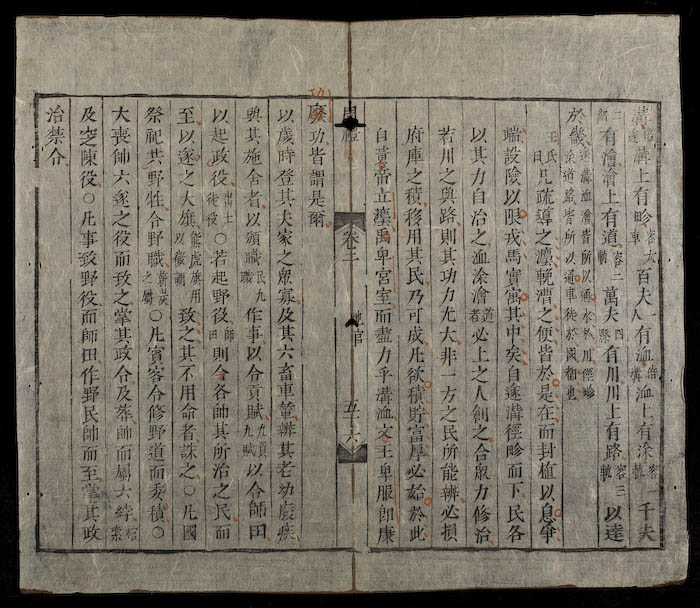 溝倍遂溝上有畛容大車百夫有洫倍溝洫上有涂容一軌千夫
有澮澮上有道容二軌萬夫有川川上有路容三軌以達
於畿遂溝洫澮皆所以通水於川徑畛涂道路皆所以通車徒於國都也
王氏曰凡疏導之灋輓漕之便皆於是在而封植以息爭
端設險以限戎馬實寓其中矣自遂溝徑畛而下民各
以其力自治之洫涂澮道者必上之人創之合眾力修治
若川之與路則其功力尤大非一方之民所能辦必損
府庫之積移用其民乃可成凡欲積貯富厚必始於此
自黃帝立灋禹卑宮室而盡力乎溝洫文王卑服即康
周禮 卷二 地官 五十六
功廢功皆謂是爾
以歲時登其夫家之眾寡及其六畜車輦辨其老幼廢疾
與其施舍者以頒職民九職作事以令貢賦九貢九賦以令師田
以起政役出士徒役○若起野役師田則令各帥其所治之民而
至以遂之大旗熊虎旗用以徵調致之其不用命者誅之○凡國
祭祀共野牲令野職薪炭之屬○凡賓客令修野道而委積○
大喪帥六遂之役而致之掌其政令及葬帥而屬六綍棺索
及窆陳役○凡事致野役而師田作野民帥而至掌其政
治禁令